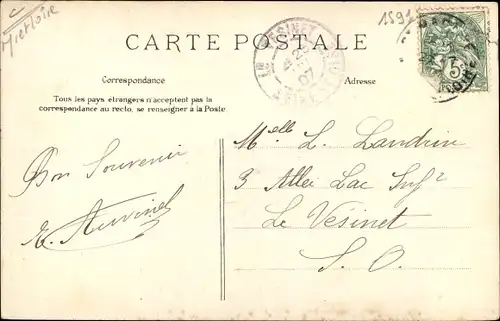 1591
CARTE POSTALE
Correspondance
Adresse
Tous les pays étrangers n'acceptent pas la
correspondance au recto, se renseigner à la Poste
Bon Souvenir
Melle L. Landrin
3 Allée Lac Infr
Le Vésinet
S. O.
VESINET
07
5